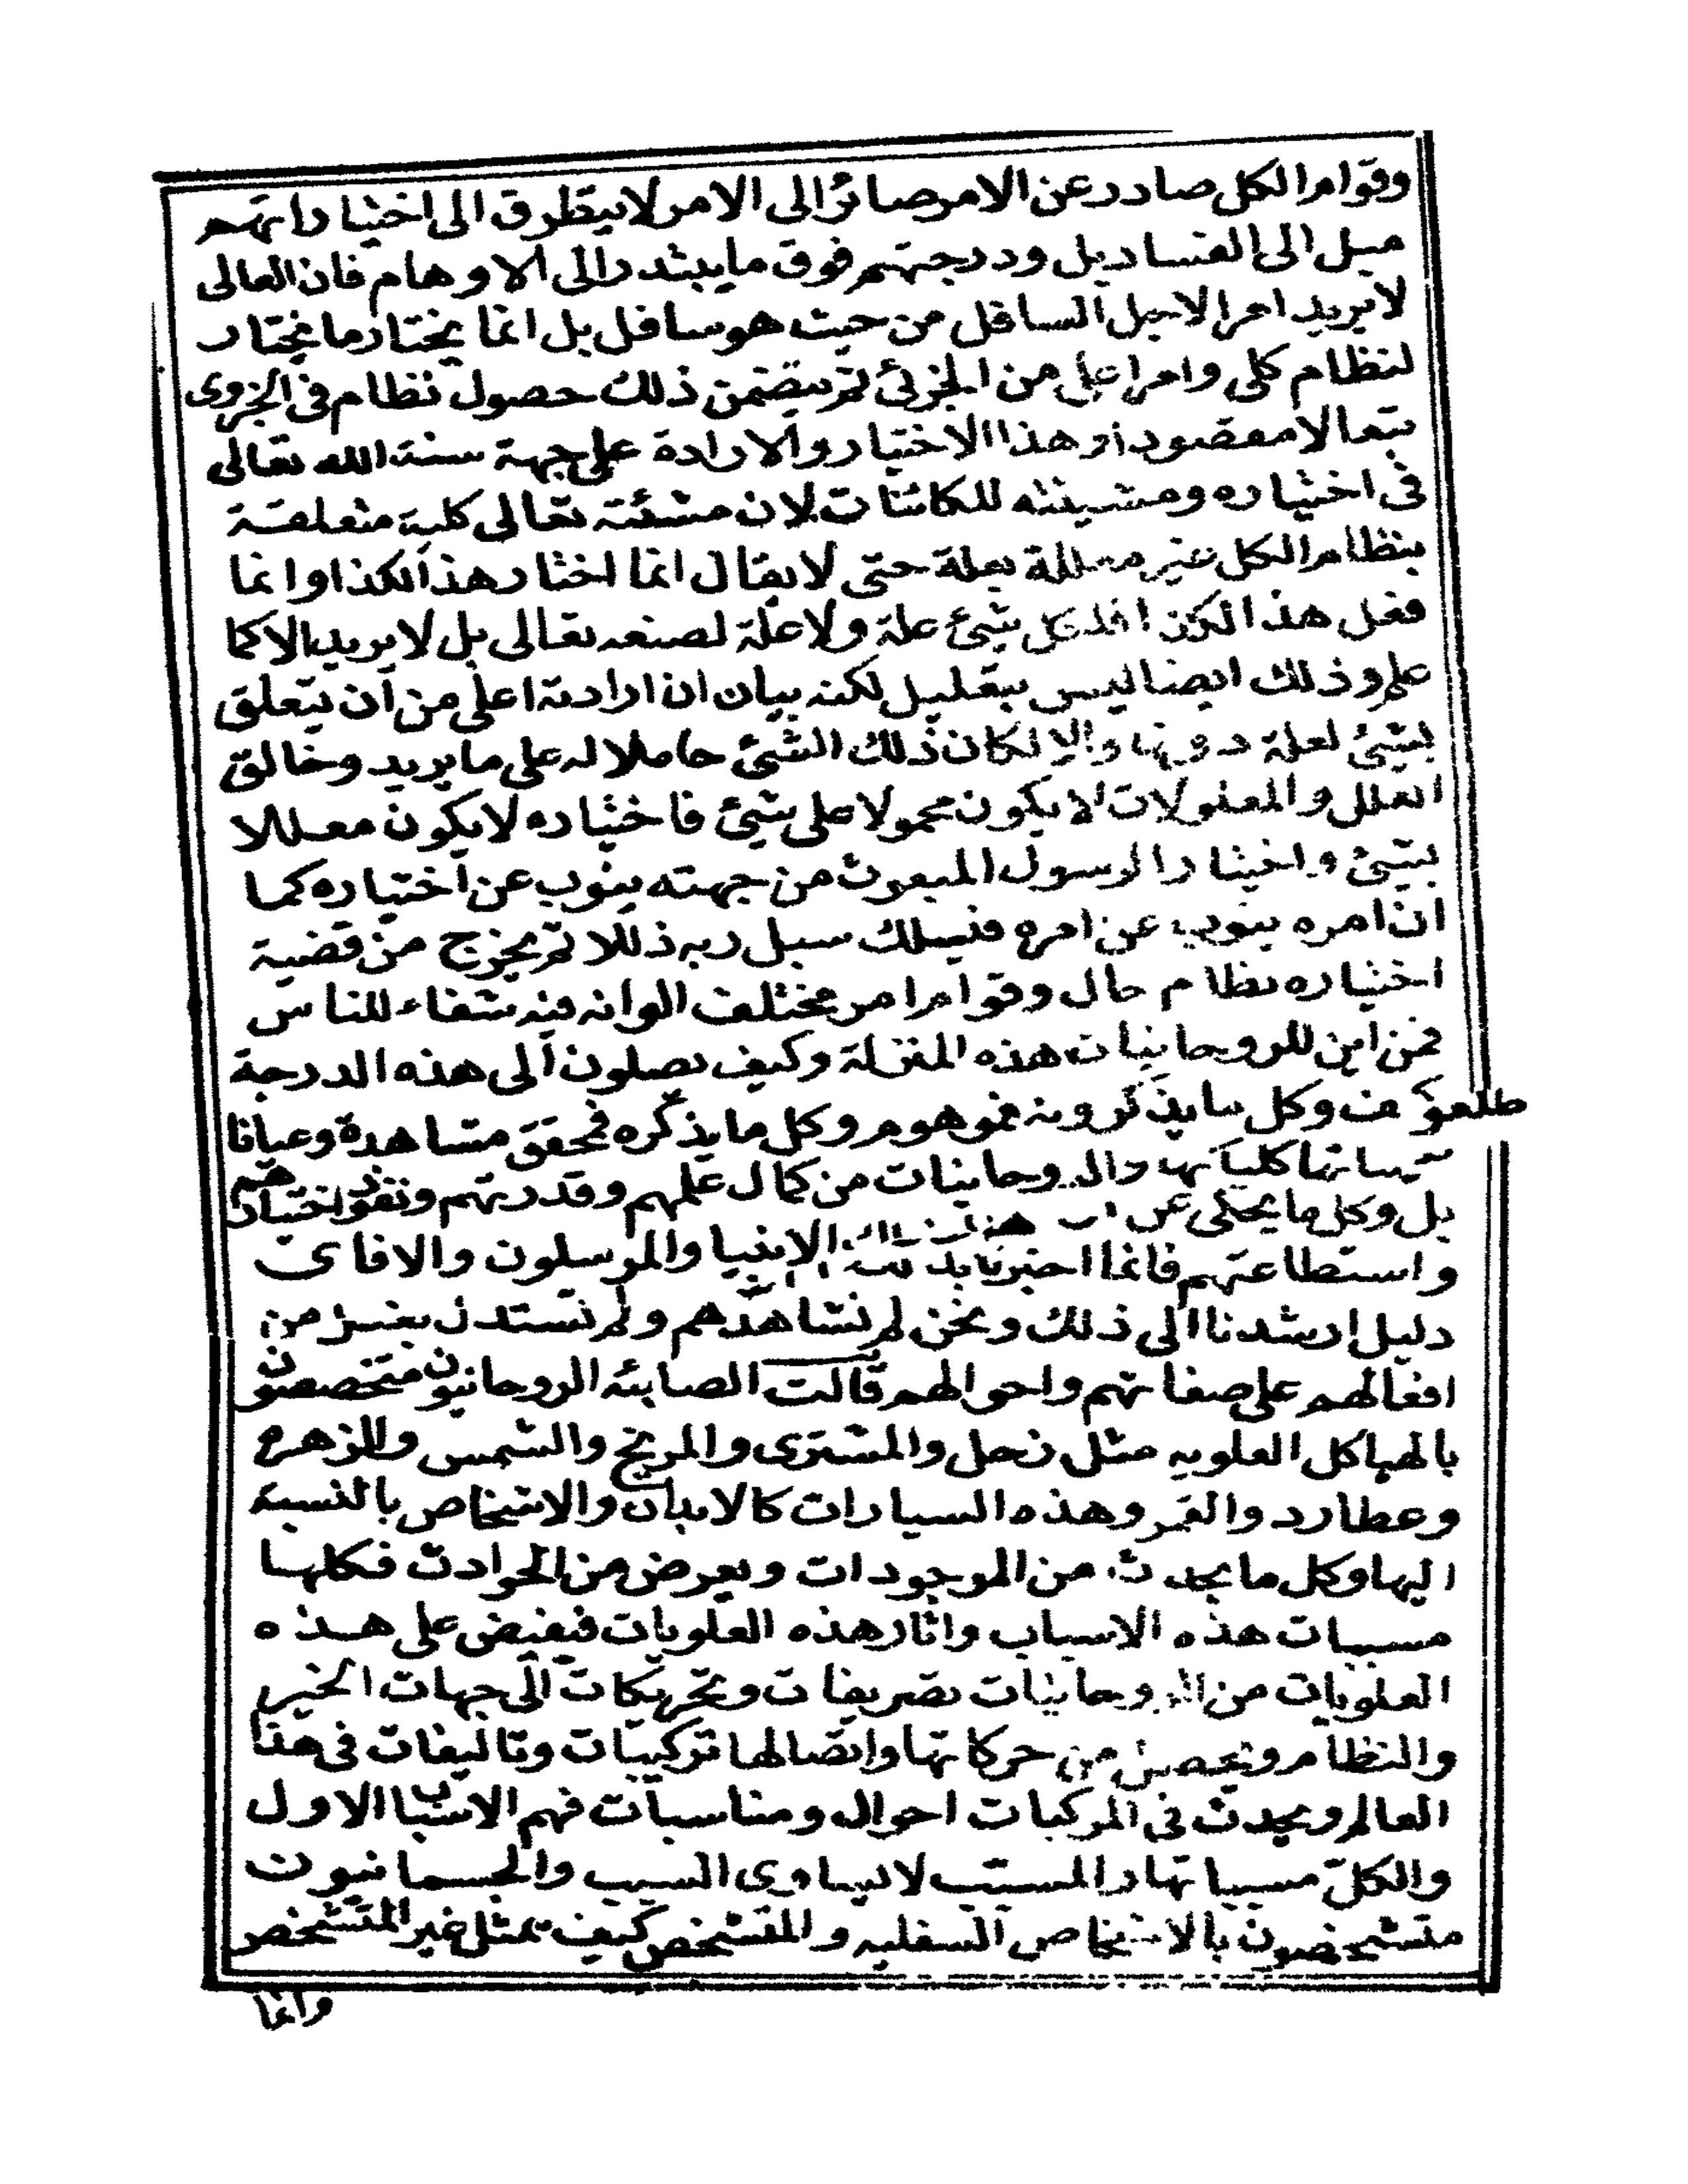 وقوام الكل صادر عن الامر صائر الى الامر لا يتطرق الى اختياراتهم
ميل الى الفساد بل ودرجتهم فوق ما يبتدر الى الاوهام فان العالى
لا يريد امرا لاجل السافل من حيث هو سافل بل انما يختار ما يختار
لنظام كلى وامر اعلى من الجزئ ثم يتضمن ذلك حصول نظام فى الجزوى
تبعا لا مقصودا وهذا الاختيار والارادة على جهة سنة الله تعالى
فى اختياره ومشيئته للكائنات لان مشئته تعالى كلية متعلقة
بنظام الكل غير معللة بعلة حتى لا يقال انما اختار هذا لكذا وانما
فعل هذا لكذا فلكل شئ علة ولا علة لصنعه تعالى بل لا يريد الا كما
علم وذلك ايضا ليس بتعليل لكنه بيان ان ارادته اعلى من ان يتعلق
بشئ لعلة دونها والا لكان ذلك الشئ حاملا له على ما يريد وخالق
العلل والمعلولات لا يكون محمولا على شئ فاختياره لا يكون معللا
بشئ واختيار الرسول المبعوث من جهته ينوب عن اختياره كما
ان امره ينوب عن امره فيسلك سبل ربه ذللا ثم يخرج من قضية
اختياره نظام حال وقوام امر مختلف الوانه فيه شفاء للناس
فمن اين للروحانيات هذه المنزلة وكيف يصلون الى هذه الدرجة
وكل ما يذكرونه فموهوم وكل ما يذكره فمحقق مشاهدة وعيانا
بل وكل ما يحكى عن الروحانيات من كمال علمهم وقدرتهم ونفوذ اختيارهم
واستطاعتهم فانما اخبرنا بذلك الانبيا والمرسلون والا فاى
دليل ارشدنا الى ذلك ونحن لم نشاهدهم ولم نستدل بفعل من
افعالهم على صفاتهم واحوالهم قالت الصابئه الروحانيون متخصصون
بالهياكل العلويه مثل زحل والمشترى والمريخ والشمس والزهره
وعطارد والقمر وهذه السيارات كالابدان والاشخاص بالنسبة
اليها وكل ما يحدث من الموجودات ويعرض من الحوادث فكلها
مسببات هذه الاسباب واثار هذه العلويات فيفيض على هذه
العلويات من الروحانيات تصريفات وتحريكات الى جهات الخير
والنظام ويحصل من حركاتها واتصالها تركيبات وتاليفات فى هذا
العالم ويحدث فى المركبات احوال ومناسبات فهم الاسباب الاول
والكل مسبباتها والمسبب لا يساوى السبب والجسمانيون
متشخصون بالاشخاص السفليه والمتشخص كيف يمثل غير المتشخص
وانما